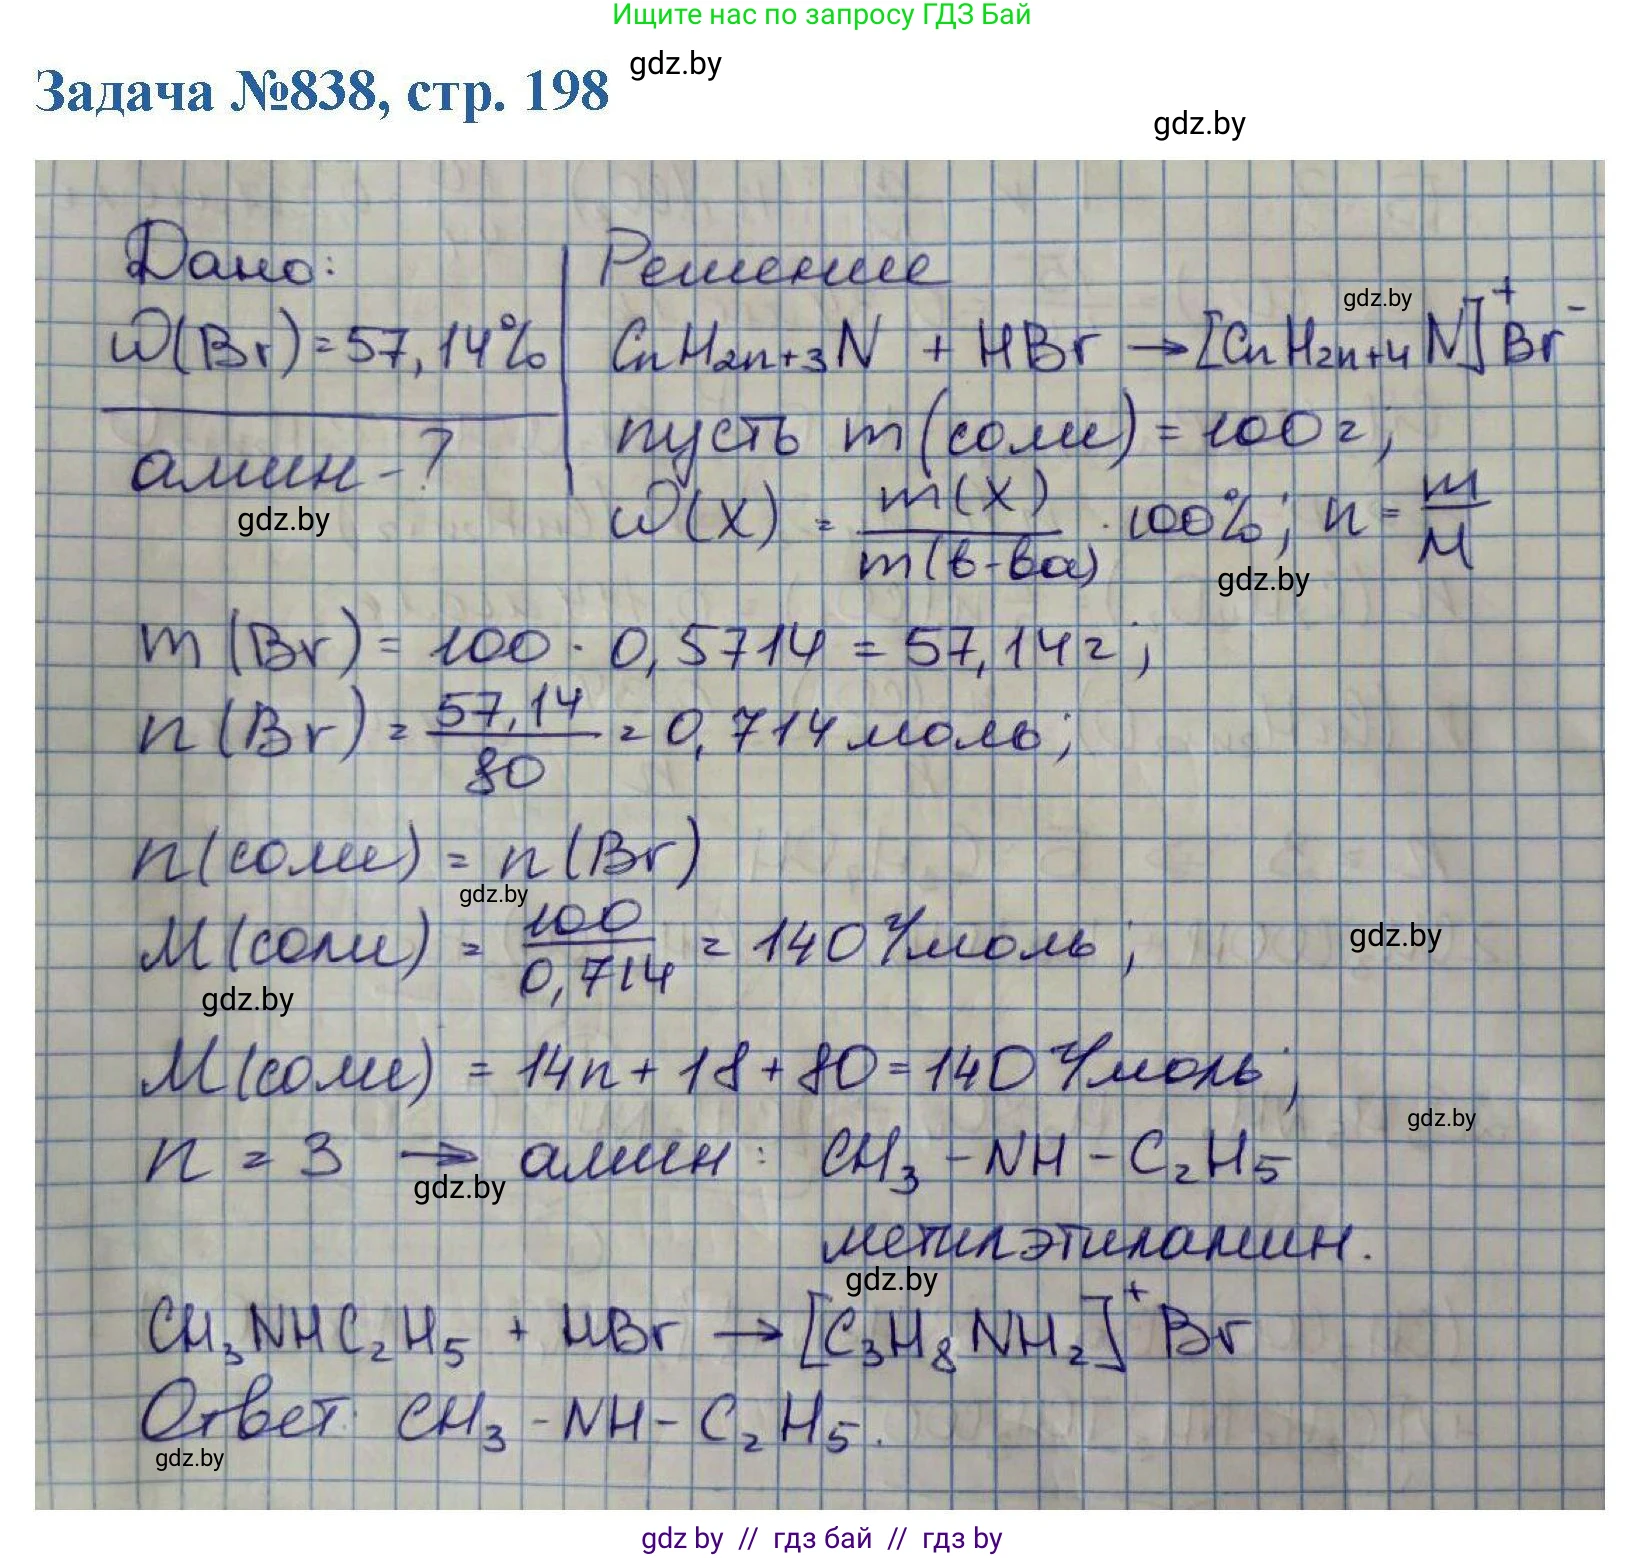 Ищите нас по запросу ГДЗ Бай
gdz.by
Задача №838, стр. 198
gdz.by
Дано:
ω(Br)=57,14%
амин-?
gdz.by
Решение
gdz.by
CnH2n+3N + HBr → [CnH2n+4N]⁺Br⁻
пусть m(соли) = 100г;
ω(X) = m(X)/m(в-ва) · 100%; n = m/M
gdz.by
m(Br) = 100 · 0,5714 = 57,14г;
n(Br) = 57,14/80 = 0,714 моль;
n(соли) = n(Br)
gdz.by
M(соли) = 100/0,714 = 140 г/моль;
gdz.by
gdz.by
M(соли) = 14n + 18 + 80 = 140 г/моль;
gdz.by
n = 3 → амин: CH₃ - NH - C₂H₅
gdz.by
метилэтиламин.
gdz.by
CH₃NHC₂H₅ + HBr → [C₃H₈NH₂]⁺Br
Ответ: CH₃ - NH - C₂H₅.
gdz.by
gdz by // гдз бай // гдз by